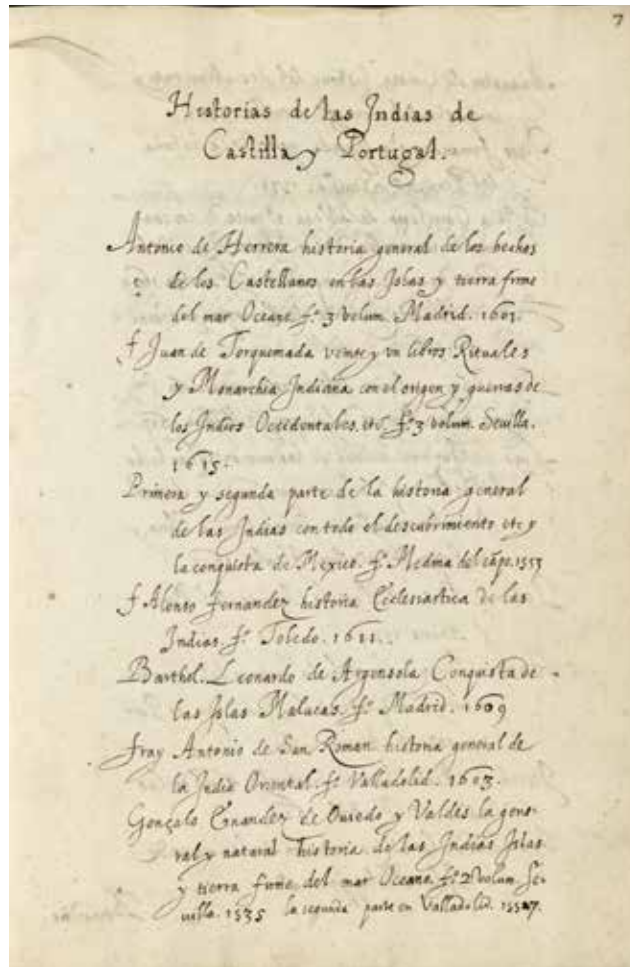 7
Historias de las Indias de
Castilla y Portugal.
Antonio de Herrera historia general de los hechos
de los Castellanos en las Islas y tierra firme
del mar Oceano. fº. 3 volum. Madrid. 1601.
f Juan de Torquemada veinte y un libros Rituales
y Monarchia Indiana con el origen y guerras de
los Indios Occidentales. etc. fº. 3 volum. Sevilla.
1615.
Primera y segunda parte de la historia general
de las Indias con todo el descubrimiento etc y
la conquista de Mexico. fº. Medina del cãpo. 1553
f Alonso Fernandez historia Ecclesiastica de las
Indias. fº. Toledo. 1611.
Barthol. Leonardo de Argensola Conquista de
las Islas Malucas. fº. Madrid. 1609
fray Antonio de San Roman historia general de
la India Oriental. fº. Valladolid. 1603.
Gonçalo Ernandez de Oviedo y Valdes la gene-
ral y natural historia de las Indias Islas
y tierra firme del mar Oceano. fº. 2 volum. Se-
villa. 1535 la segunda parte en Valladolid.